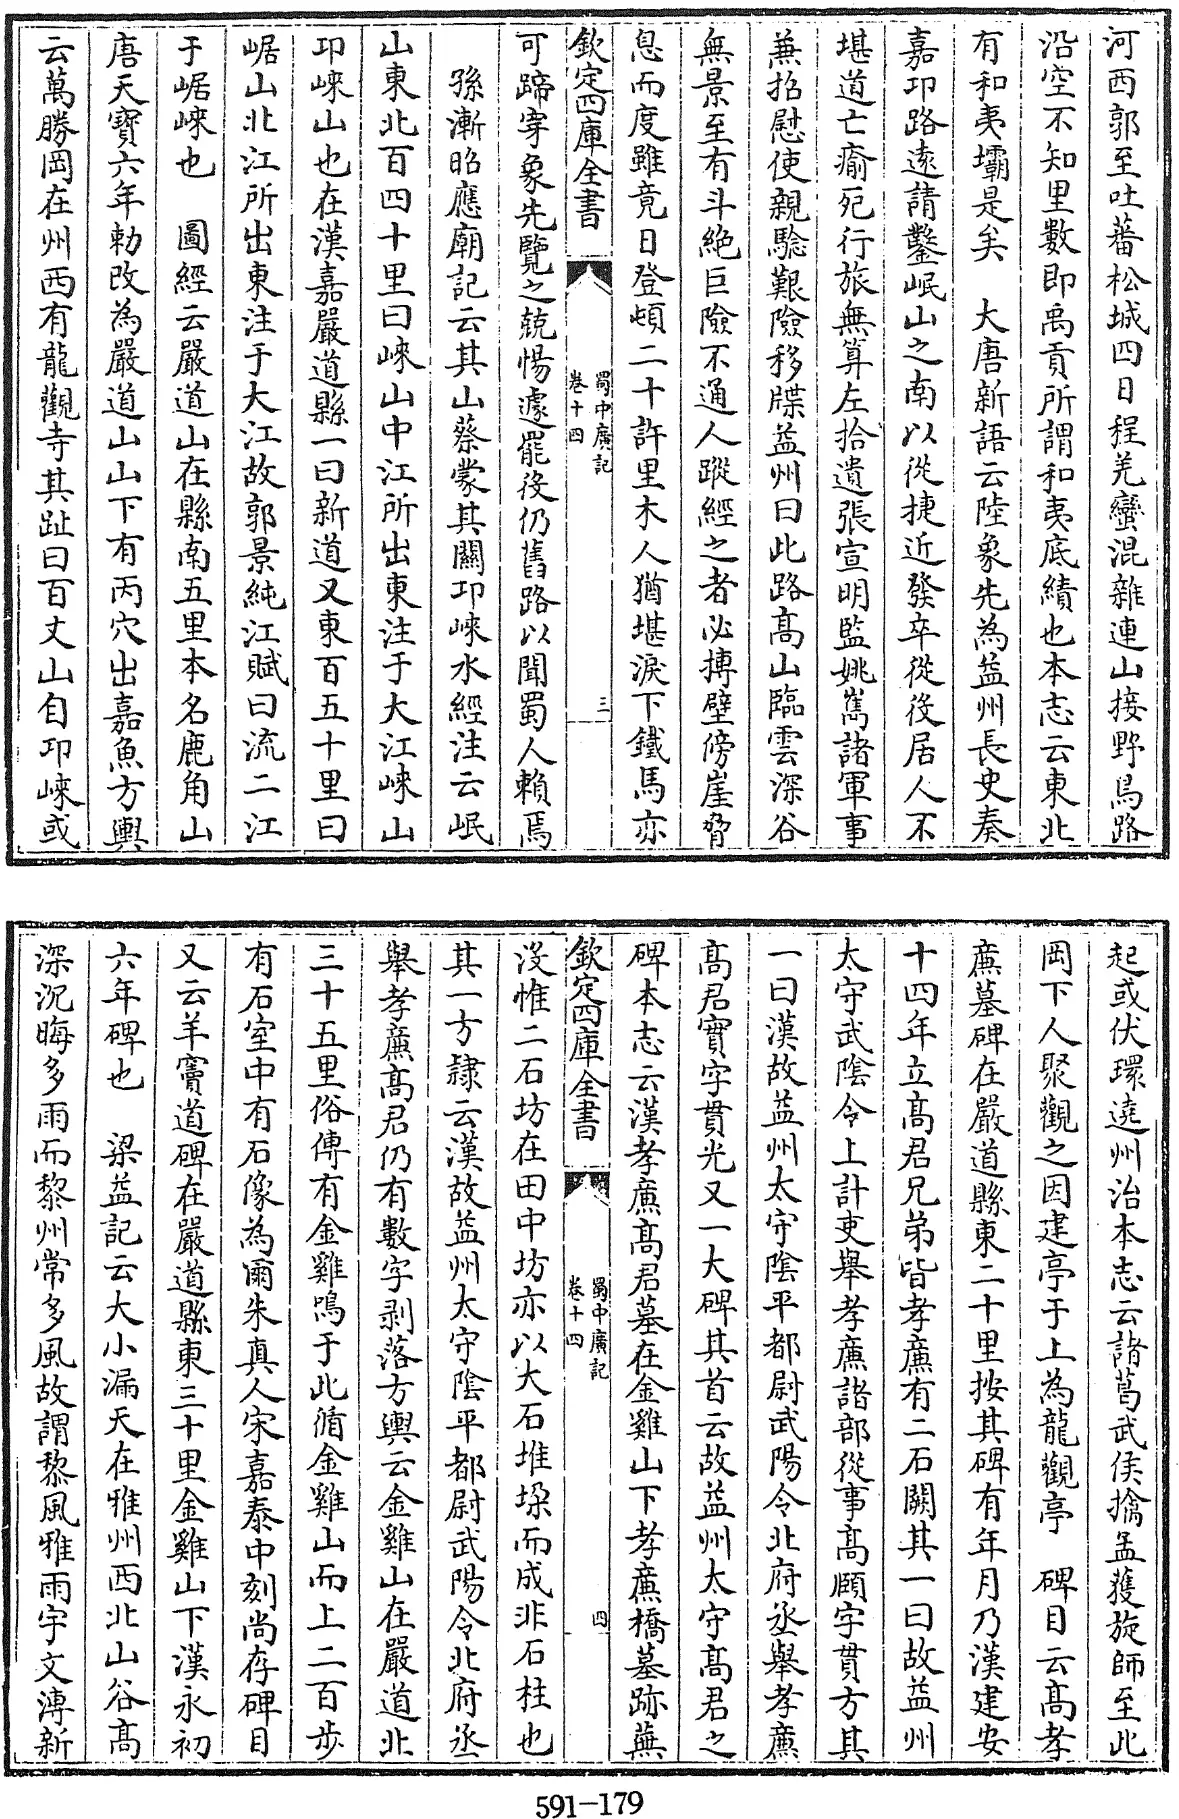 河西郭至吐蕃松城四日程羌蠻混雜連山接野鳥路
沿空不知里數即禹貢所謂和夷底績也本志云東北
有和夷壩是矣　大唐新語云陸象先為益州長史奏
嘉邛路遠請鑿岷山之南以從捷近發卒從役居人不
堪道亡瘉死行旅無算左拾遺張宣明監姚嶲諸軍事
兼招慰使親驗艱險移牒益州曰此路高山臨雲深谷
無景至有斗絕巨險不通人蹤經之者必搏壁傍崖脅
息而度雖竟日登頓二十許里木人猶堪淚下鐵馬亦
欽定四庫全書　蜀中廣記卷十四　三
可蹄穿象先覽之兢惕遽罷役仍舊路以聞蜀人賴焉
孫漸昭應廟記云其山蔡蒙其關邛崍水經注云岷
山東北百四十里曰崍山中江所出東注于大江崍山
邛崍山也在漢嘉嚴道縣一曰新道又東百五十里曰
崌山北江所出東注于大江故郭景純江賦曰流二江
于崌崍也　圖經云嚴道山在縣南五里本名鹿角山
唐天寶六年勅改為嚴道山山下有丙穴出嘉魚方輿
云萬勝岡在州西有龍觀寺其趾曰百丈山自邛崍或
起或伏環遶州治本志云諸葛武侯擒孟獲旋師至此
岡下人聚觀之因建亭于上為龍觀亭　碑目云高孝
廉墓碑在嚴道縣東二十里按其碑有年月乃漢建安
十四年立高君兄弟皆孝廉有二石闕其一曰故益州
太守武陰令上計吏舉孝廉諸部從事高頤字貫方其
一曰漢故益州太守陰平都尉武陽令北府丞舉孝廉
高君實字貫光又一大碑其首云故益州太守高君之
碑本志云漢孝廉高君墓在金雞山下孝廉橋墓跡蕪
欽定四庫全書　蜀中廣記卷十四　四
沒惟二石坊在田中坊亦以大石堆垜而成非石柱也
其一方隸云漢故益州太守陰平都尉武陽令北府丞
舉孝廉高君仍有數字剥落方輿云金雞山在嚴道北
三十五里俗傳有金雞鳴于此循金雞山而上二百步
有石室中有石像為爾朱真人宋嘉泰中刻尚存碑目
又云羊竇道碑在嚴道縣東三十里金雞山下漢永初
六年碑也　梁益記云大小漏天在雅州西北山谷高
深沉晦多雨而黎州常多風故謂黎風雅雨宇文溥新
591-179